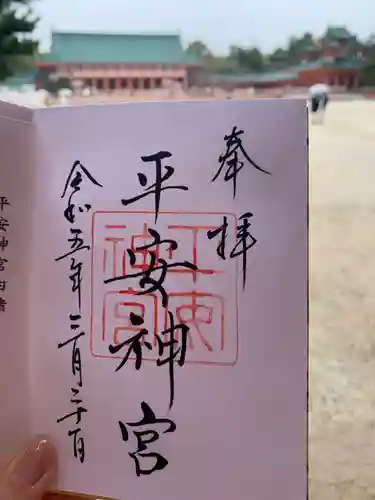 奉拝
平安神宮
平安神宮
令和五年三月三十一日
平安神宮由緒